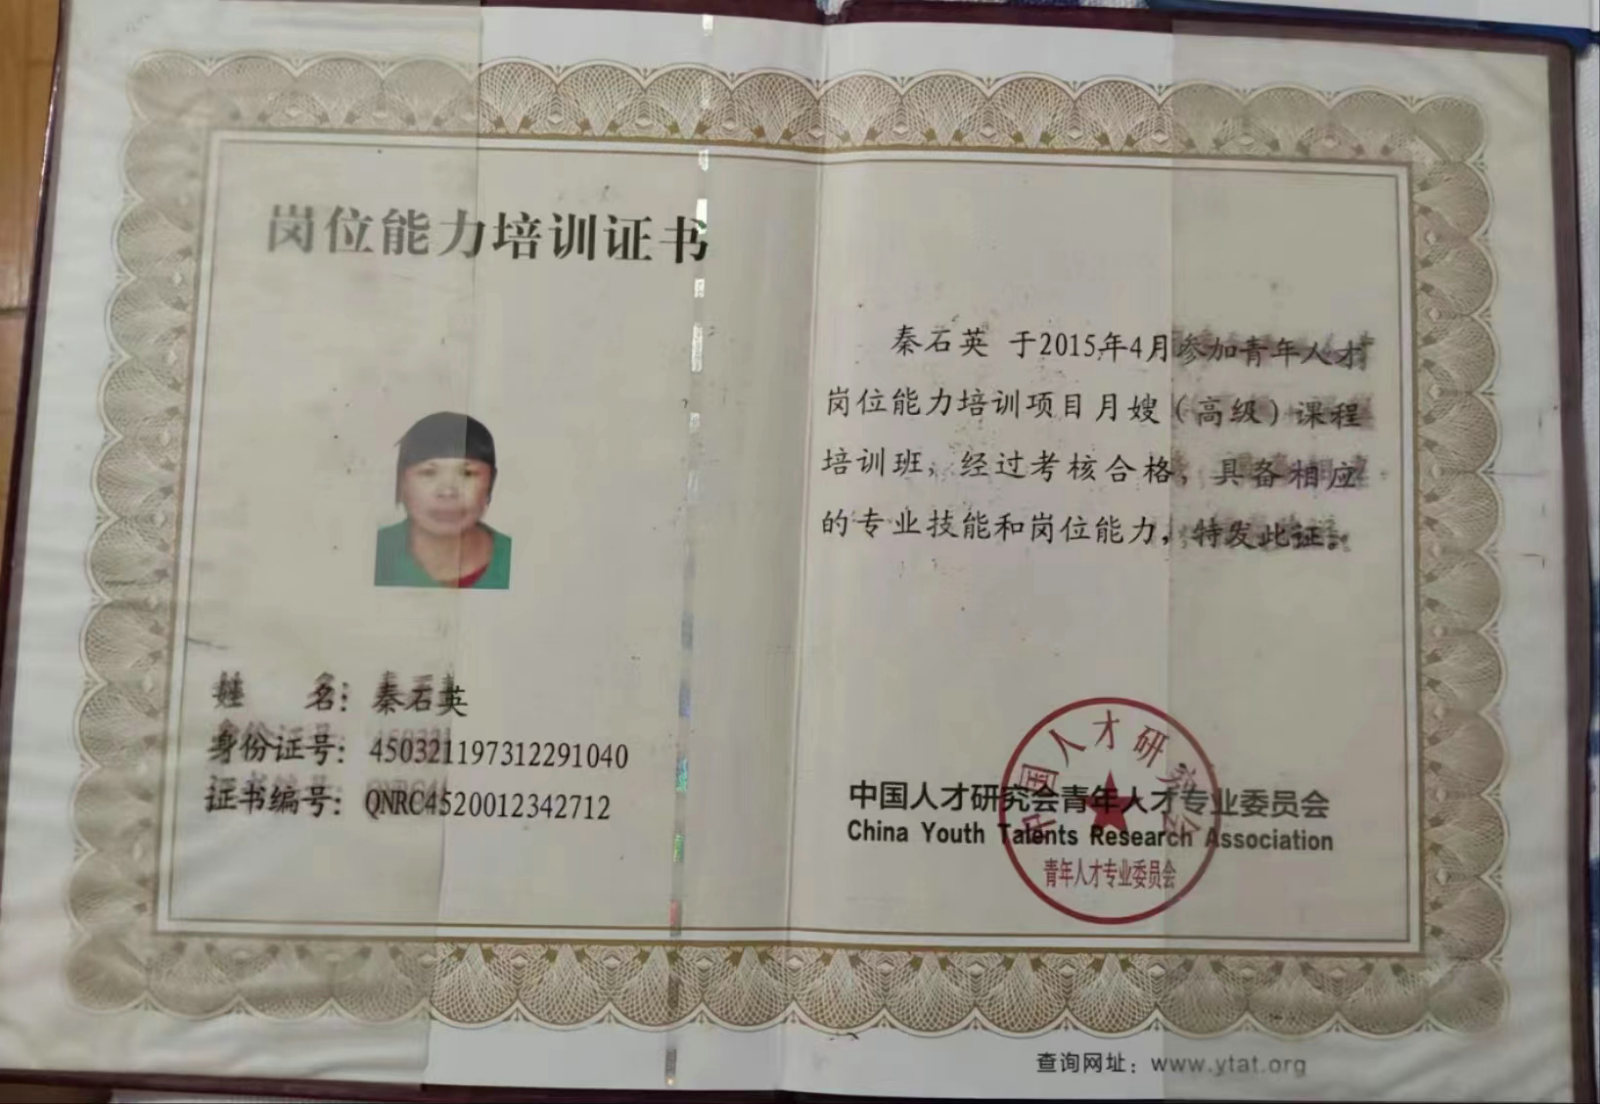 岗位能力培训证书
姓 名：秦石英
身份证号：450321197312291040
证书编号：QNRC4520012342712
秦石英 于2015年4月参加青年人才
岗位能力培训项目月嫂（高级）课程
培训班，经过考核合格，具备相应
的专业技能和岗位能力，特发此证。
中国人才研究会
中国人才研究会青年人才专业委员会
China Youth Talents Research Association
青年人才专业委员会
查询网址：www.ytat.org